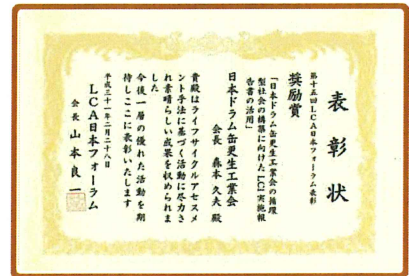 表彰状
第十五回LCA日本フォーラム表彰
奨励賞
「日本ドラム缶更生工業会の循環
型社会の構築に向けたLCI実施報
告書の活用」
日本ドラム缶更生工業会
会長 森本 久夫 殿
貴殿はライフサイクルアセスメ
ント手法に基づく活動に尽力さ
れ素晴らしい成果を収められま
した
今後一層の優れた活動を期
待しここに表彰いたします
平成三十一年二月二十八日
LCA日本フォーラム
会長 山本良一